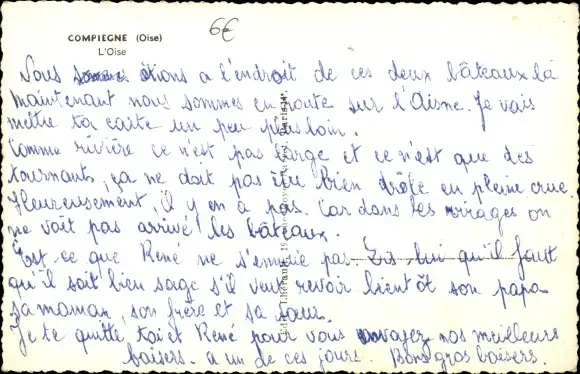 COMPIEGNE (Oise)
L'Oise
6€
Nous étions a l'endroit de ces deux bâteaux là
maintenant nous sommes en route sur l'Aisne. Je vais
mettre ta carte un peu plus loin.
Comme rivière ce n'est pas large et ce n'est que des
tournants, ça ne doit pas être bien drôle en pleine crue.
Heureusement, il y en a pas. Car dans les virages on
ne voit pas arrivé les bâteaux.
Est ce que René ne s'ennuie pas. Dis lui qu'il faut
qu'il soit bien sage s'il veut revoir bientôt son papa
sa maman, son frère et sa sœur.
Je te quitte toi et René pour vous envoyez nos meilleurs
baisers. a un de ces jours. Bons gros baisers.